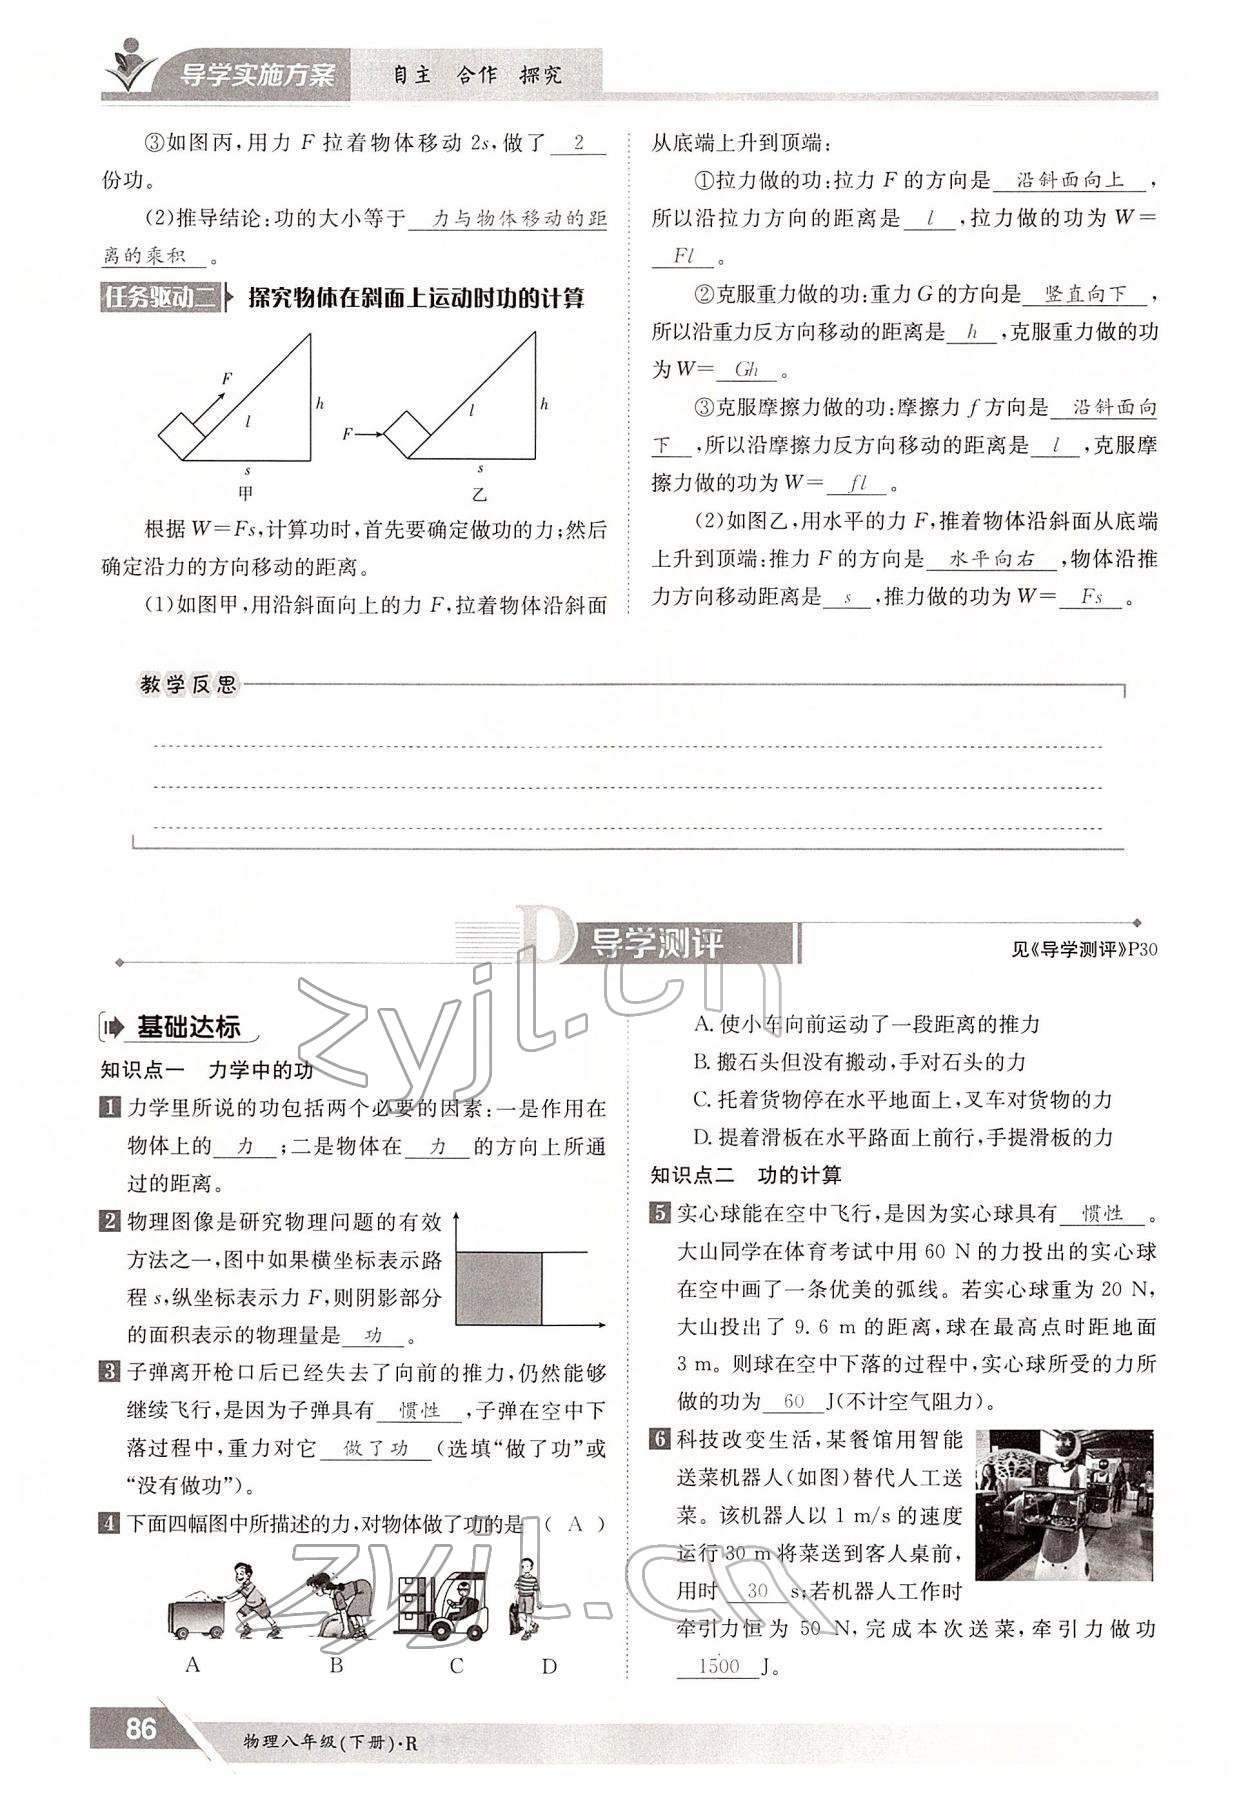 导学实施方案
自主 合作 探究
③如图丙,用力 F 拉着物体移动 2s,做了 2
份功。
(2)推导结论:功的大小等于 力与物体移动的距
离的乘积 。
任务驱动二 探究物体在斜面上运动时功的计算
F
l
h
s
甲
F
l
h
s
乙
根据 W=Fs,计算功时,首先要确定做功的力;然后
确定沿力的方向移动的距离。
(1)如图甲,用沿斜面向上的力 F,拉着物体沿斜面
从底端上升到顶端:
①拉力做的功:拉力 F 的方向是 沿斜面向上 ,
所以沿拉力方向的距离是 l ,拉力做的功为 W=
Fl 。
②克服重力做的功:重力 G 的方向是 竖直向下 ,
所以沿重力反方向移动的距离是 h ,克服重力做的功
为 W= Gh 。
③克服摩擦力做的功:摩擦力 f 方向是 沿斜面向
下 ,所以沿摩擦力反方向移动的距离是 l ,克服摩
擦力做的功为 W= fl 。
(2)如图乙,用水平的力 F,推着物体沿斜面从底端
上升到顶端:推力 F 的方向是 水平向右 ,物体沿推
力方向移动距离是 s ,推力做的功为 W= Fs 。
教学反思
D 导学测评
见《导学测评》P30
基础达标
知识点一 力学中的功
1 力学里所说的功包括两个必要的因素:一是作用在
物体上的 力 ;二是物体在 力 的方向上所通
过的距离。
2 物理图像是研究物理问题的有效
方法之一,图中如果横坐标表示路
程 s,纵坐标表示力 F,则阴影部分
的面积表示的物理量是 功 。
3 子弹离开枪口后已经失去了向前的推力,仍然能够
继续飞行,是因为子弹具有 惯性 ,子弹在空中下
落过程中,重力对它 做了功 (选填“做了功”或
“没有做功”)。
4 下面四幅图中所描述的力,对物体做了功的是 ( A )
A B C D
A. 使小车向前运动了一段距离的推力
B. 搬石头但没有搬动,手对石头的力
C. 托着货物停在水平地面上,叉车对货物的力
D. 提着滑板在水平路面上前行,手提滑板的力
知识点二 功的计算
5 实心球能在空中飞行,是因为实心球具有 惯性 。
大山同学在体育考试中用 60 N 的力投出的实心球
在空中画了一条优美的弧线。若实心球重为 20 N,
大山投出了 9.6 m 的距离,球在最高点时距地面
3 m。则球在空中下落的过程中,实心球所受的力所
做的功为 60 J(不计空气阻力)。
6 科技改变生活,某餐馆用智能
送菜机器人(如图)替代人工送
菜。该机器人以 1 m/s 的速度
运行 30 m 将菜送到客人桌前,
用时 30 s;若机器人工作时
牵引力恒为 50 N,完成本次送菜,牵引力做功
1500 J。
zyjl.cn
zyjl.cn
86
物理八年级(下册)·R